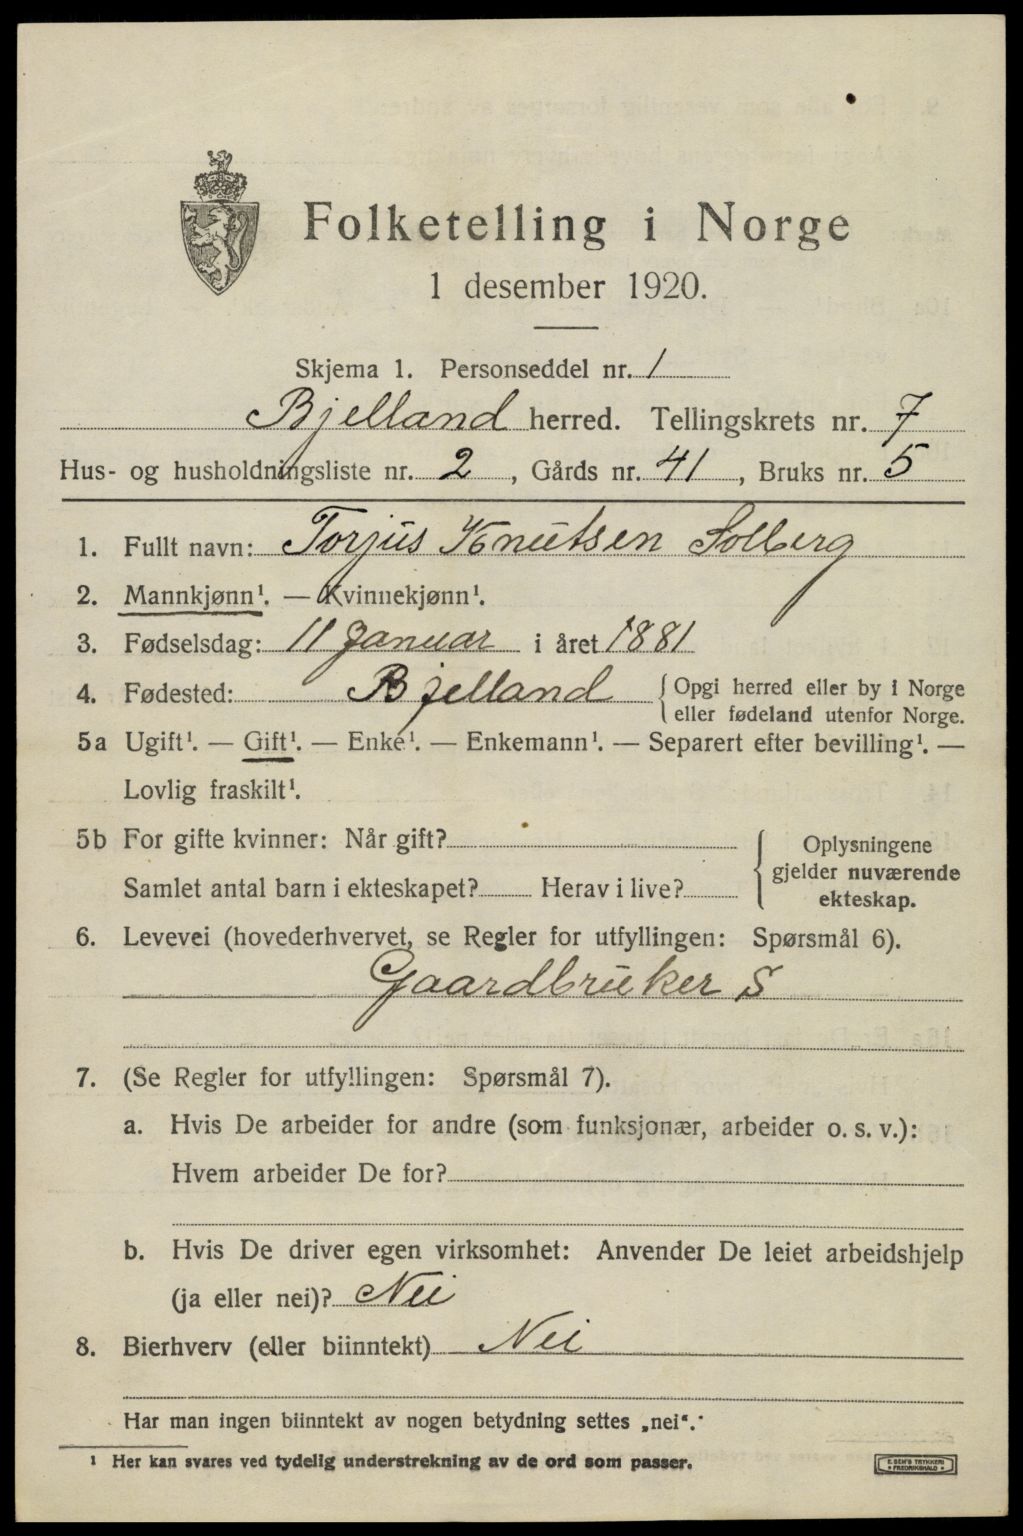 Folketelling i Norge
1 desember 1920.
Skjema 1. Personseddel nr. 1
Bjelland herred. Tellingskrets nr. 7
Hus- og husholdningsliste nr. 2, Gårds nr. 41, Bruks nr. 5
1. Fullt navn: Torjus Knutsen Solberg
2. Mannkjønn¹. — Kvinnekjønn¹.
3. Fødselsdag: 11 Januar i året 1881
4. Fødested: Bjelland { Opgi herred eller by i Norge
eller fødeland utenfor Norge.
5a Ugift¹. — Gift¹. — Enke¹. — Enkemann¹. — Separert efter bevilling¹. —
Lovlig fraskilt¹.
5b For gifte kvinner: Når gift?
Samlet antal barn i ekteskapet? Herav i live?
{ Oplysningene
gjelder nuværende
ekteskap.
6. Levevei (hovederhvervet, se Regler for utfyllingen: Spørsmål 6).
Gaardbruker S
7. (Se Regler for utfyllingen: Spørsmål 7).
a. Hvis De arbeider for andre (som funksjonær, arbeider o. s. v.):
Hvem arbeider De for?
b. Hvis De driver egen virksomhet: Anvender De leiet arbeidshjelp
(ja eller nei)? Nei
8. Bierhverv (eller biinntekt) Nei
Har man ingen biinntekt av nogen betydning settes „nei“.
¹ Her kan svares ved tydelig understrekning av de ord som passer.
E. SEM'S TRYKKERI
FREDRIKSHALD